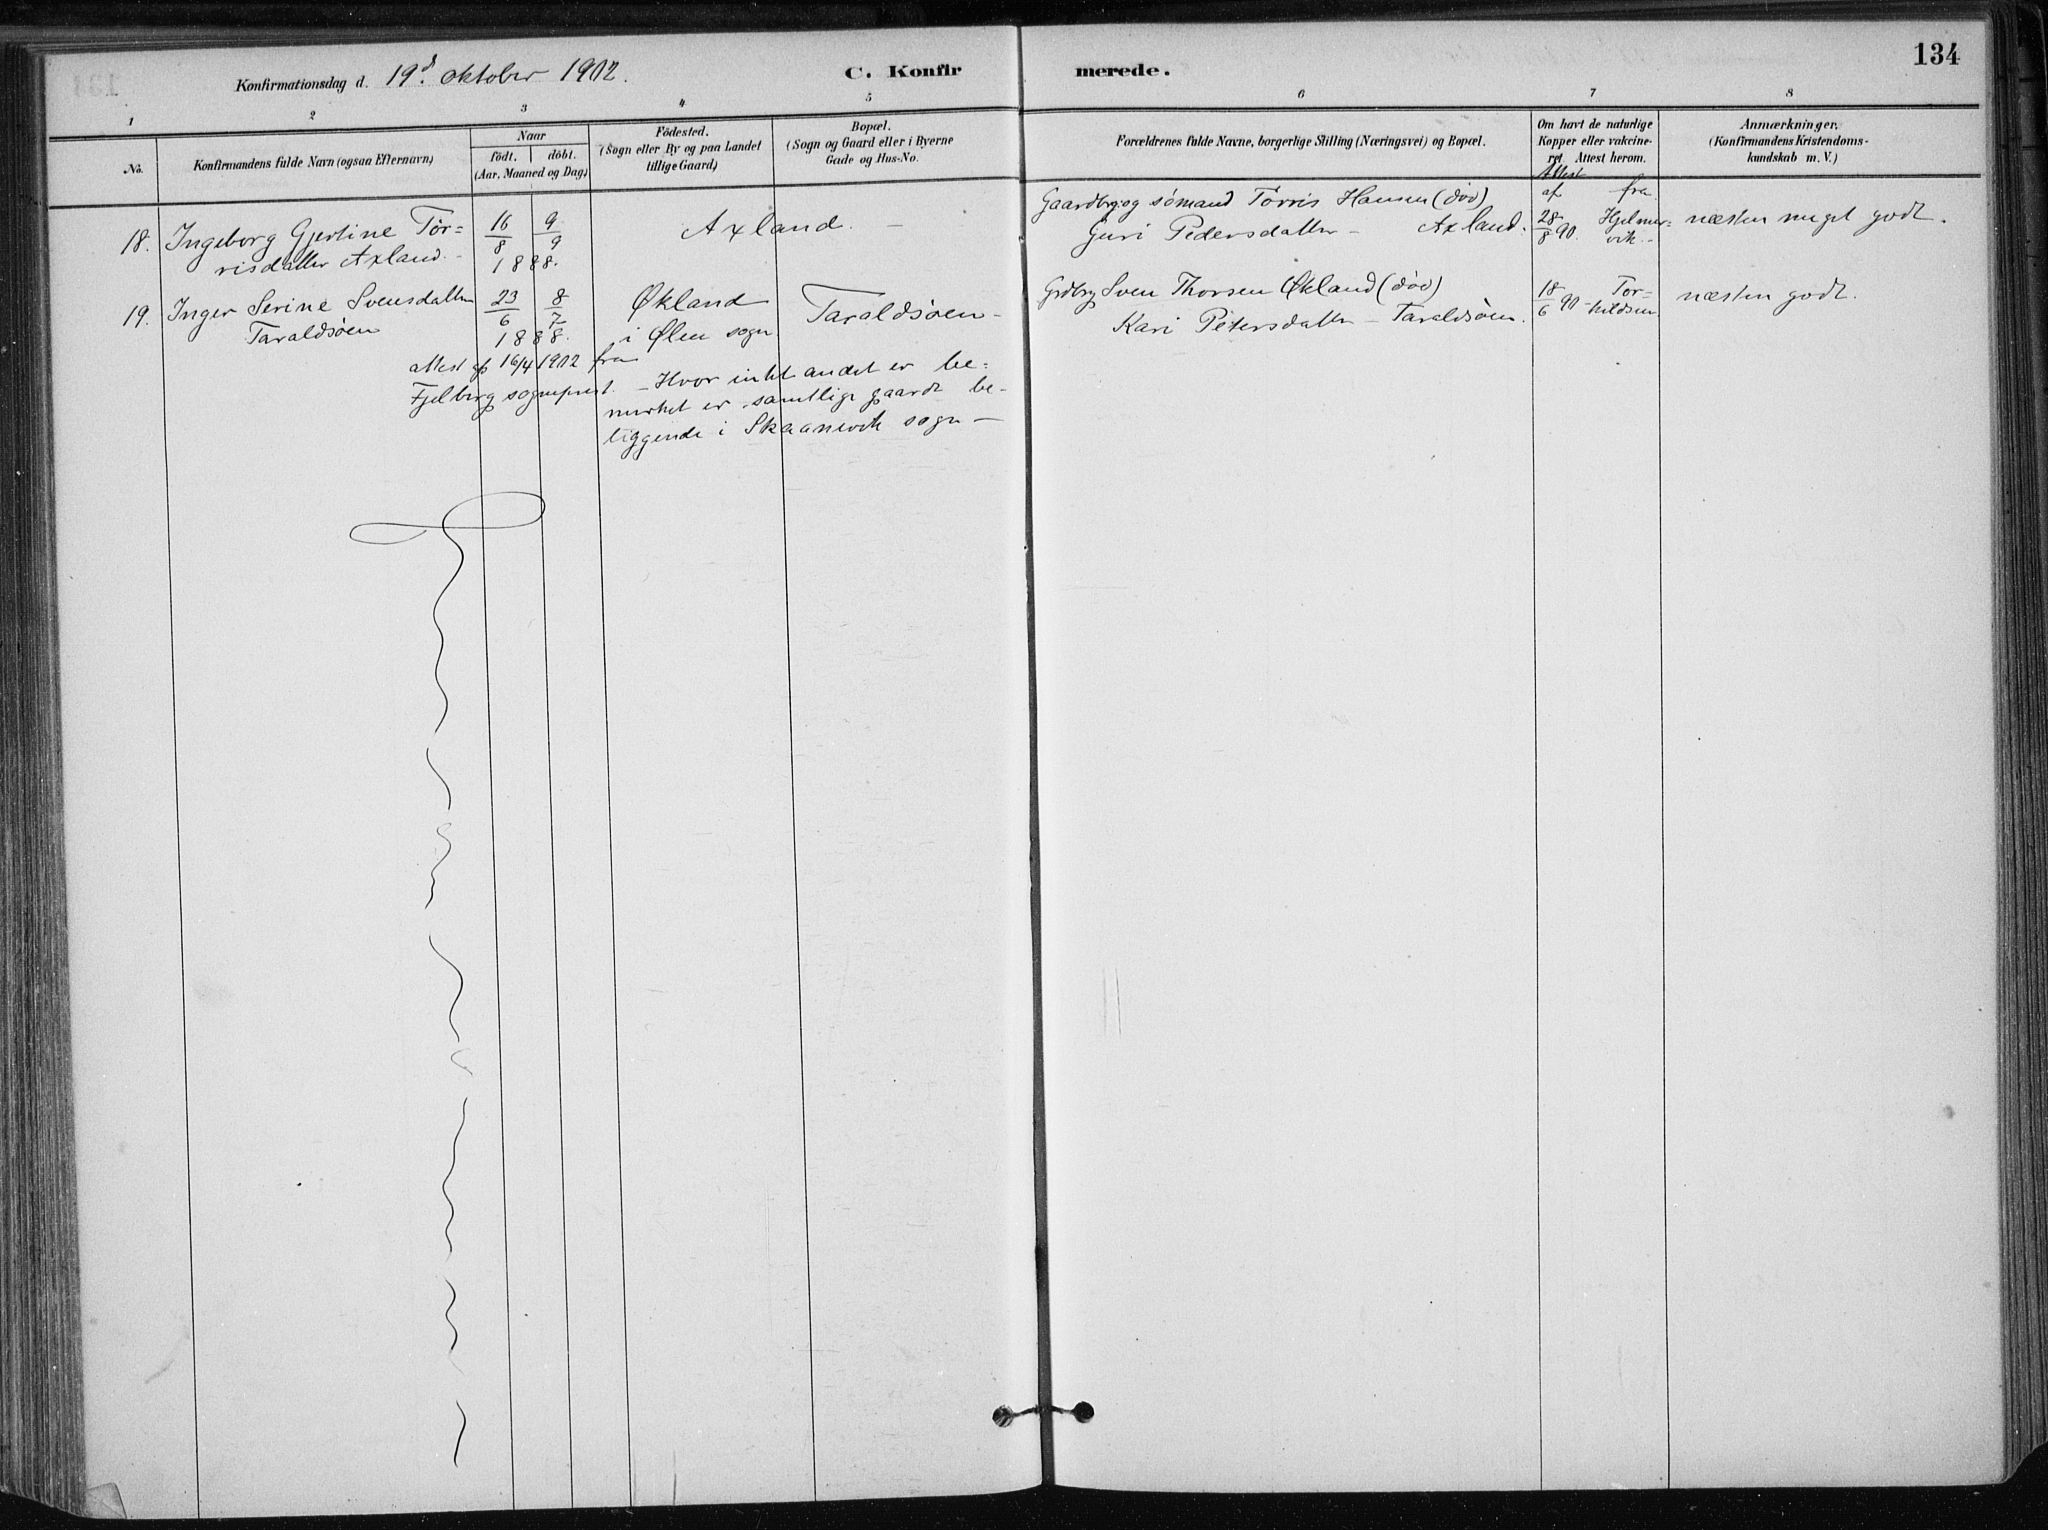 134
Konfirmationsdag d. 19d oktober 1902. C. Konfir merede.
1 2 3 4 5 6 7 8
No. Konfirmandens fulde Navn (ogsaa Efternavn) Naar født. døbt. (Aar, Maaned og Dag) Fødested. (Sogn eller By og paa Landet tillige Gaard) Bopæl. (Sogn og Gaard eller i Byerne Gade og Hus-No. Forældrenes fulde Navne, borgerlige Stilling (Næringsvei) og Bopæl. Om havt de naturlige Kopper eller vakcineret. Attest herom. Anmærkninger. (Konfirmandens Kristendomskundskab m. V.)
Attest
af fra
18. Ingeborg Gjertine Tør= 16/8 9/9 Axland. — Gaardbr. og sømand Tørris Hansen (død) 28/8 90. Hjelmer= næsten meget godt.
risdatter Axland. 1888. Guri Pedersdatter — Axland. vik.
19. Inger Serine Svensdatter 23/6 8/7 Økland Taraldsøen — Grdbrg Sven Thorsen Økland (død) 18/6 90 Tor= næsten godt.
Taraldsøen 1888. i Ølen sogn Kari Petersdatter — Taraldsøen. kildsen
attest af 16/4 1902 fra
Fjelberg sogneprest. — Hvor intet andet er be=
merket er samtlige gaarde be-
liggende i Skaanevik sogn —